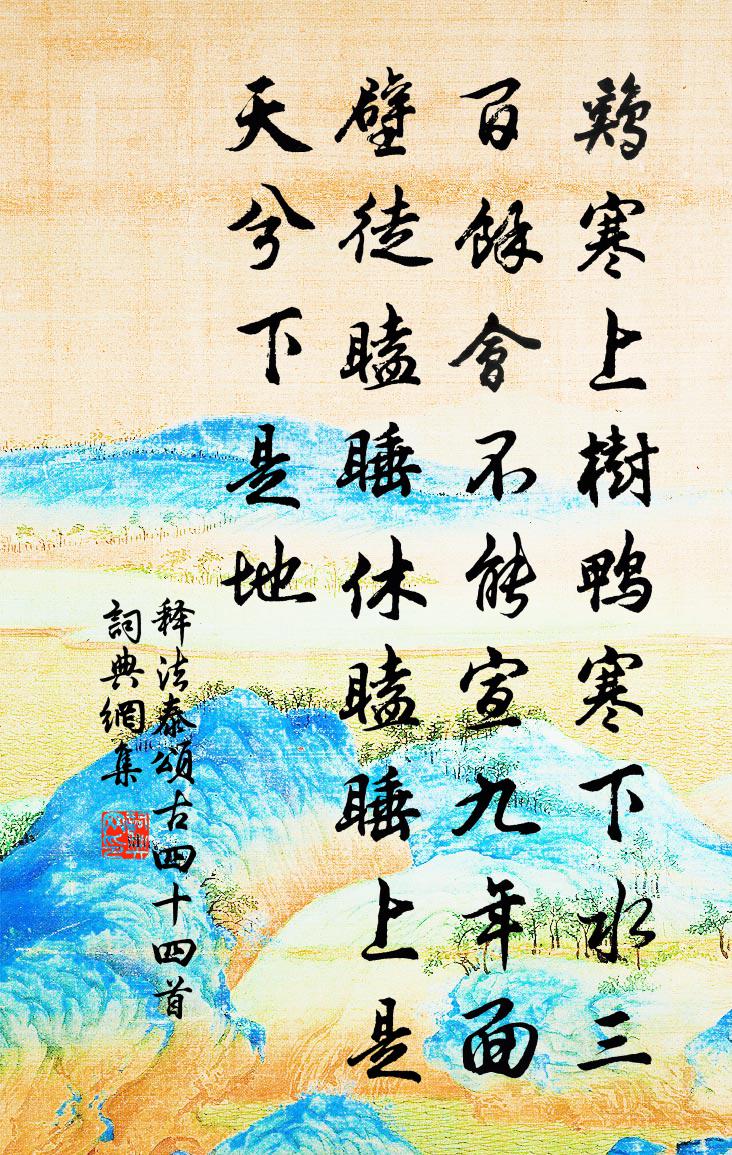 鷄寒上樹鴨寒下水三
百餘會不能宣九年面
壁徒瞌睡休瞌睡上是
天兮下是地
释法泰頌古四十四首
詞典網集